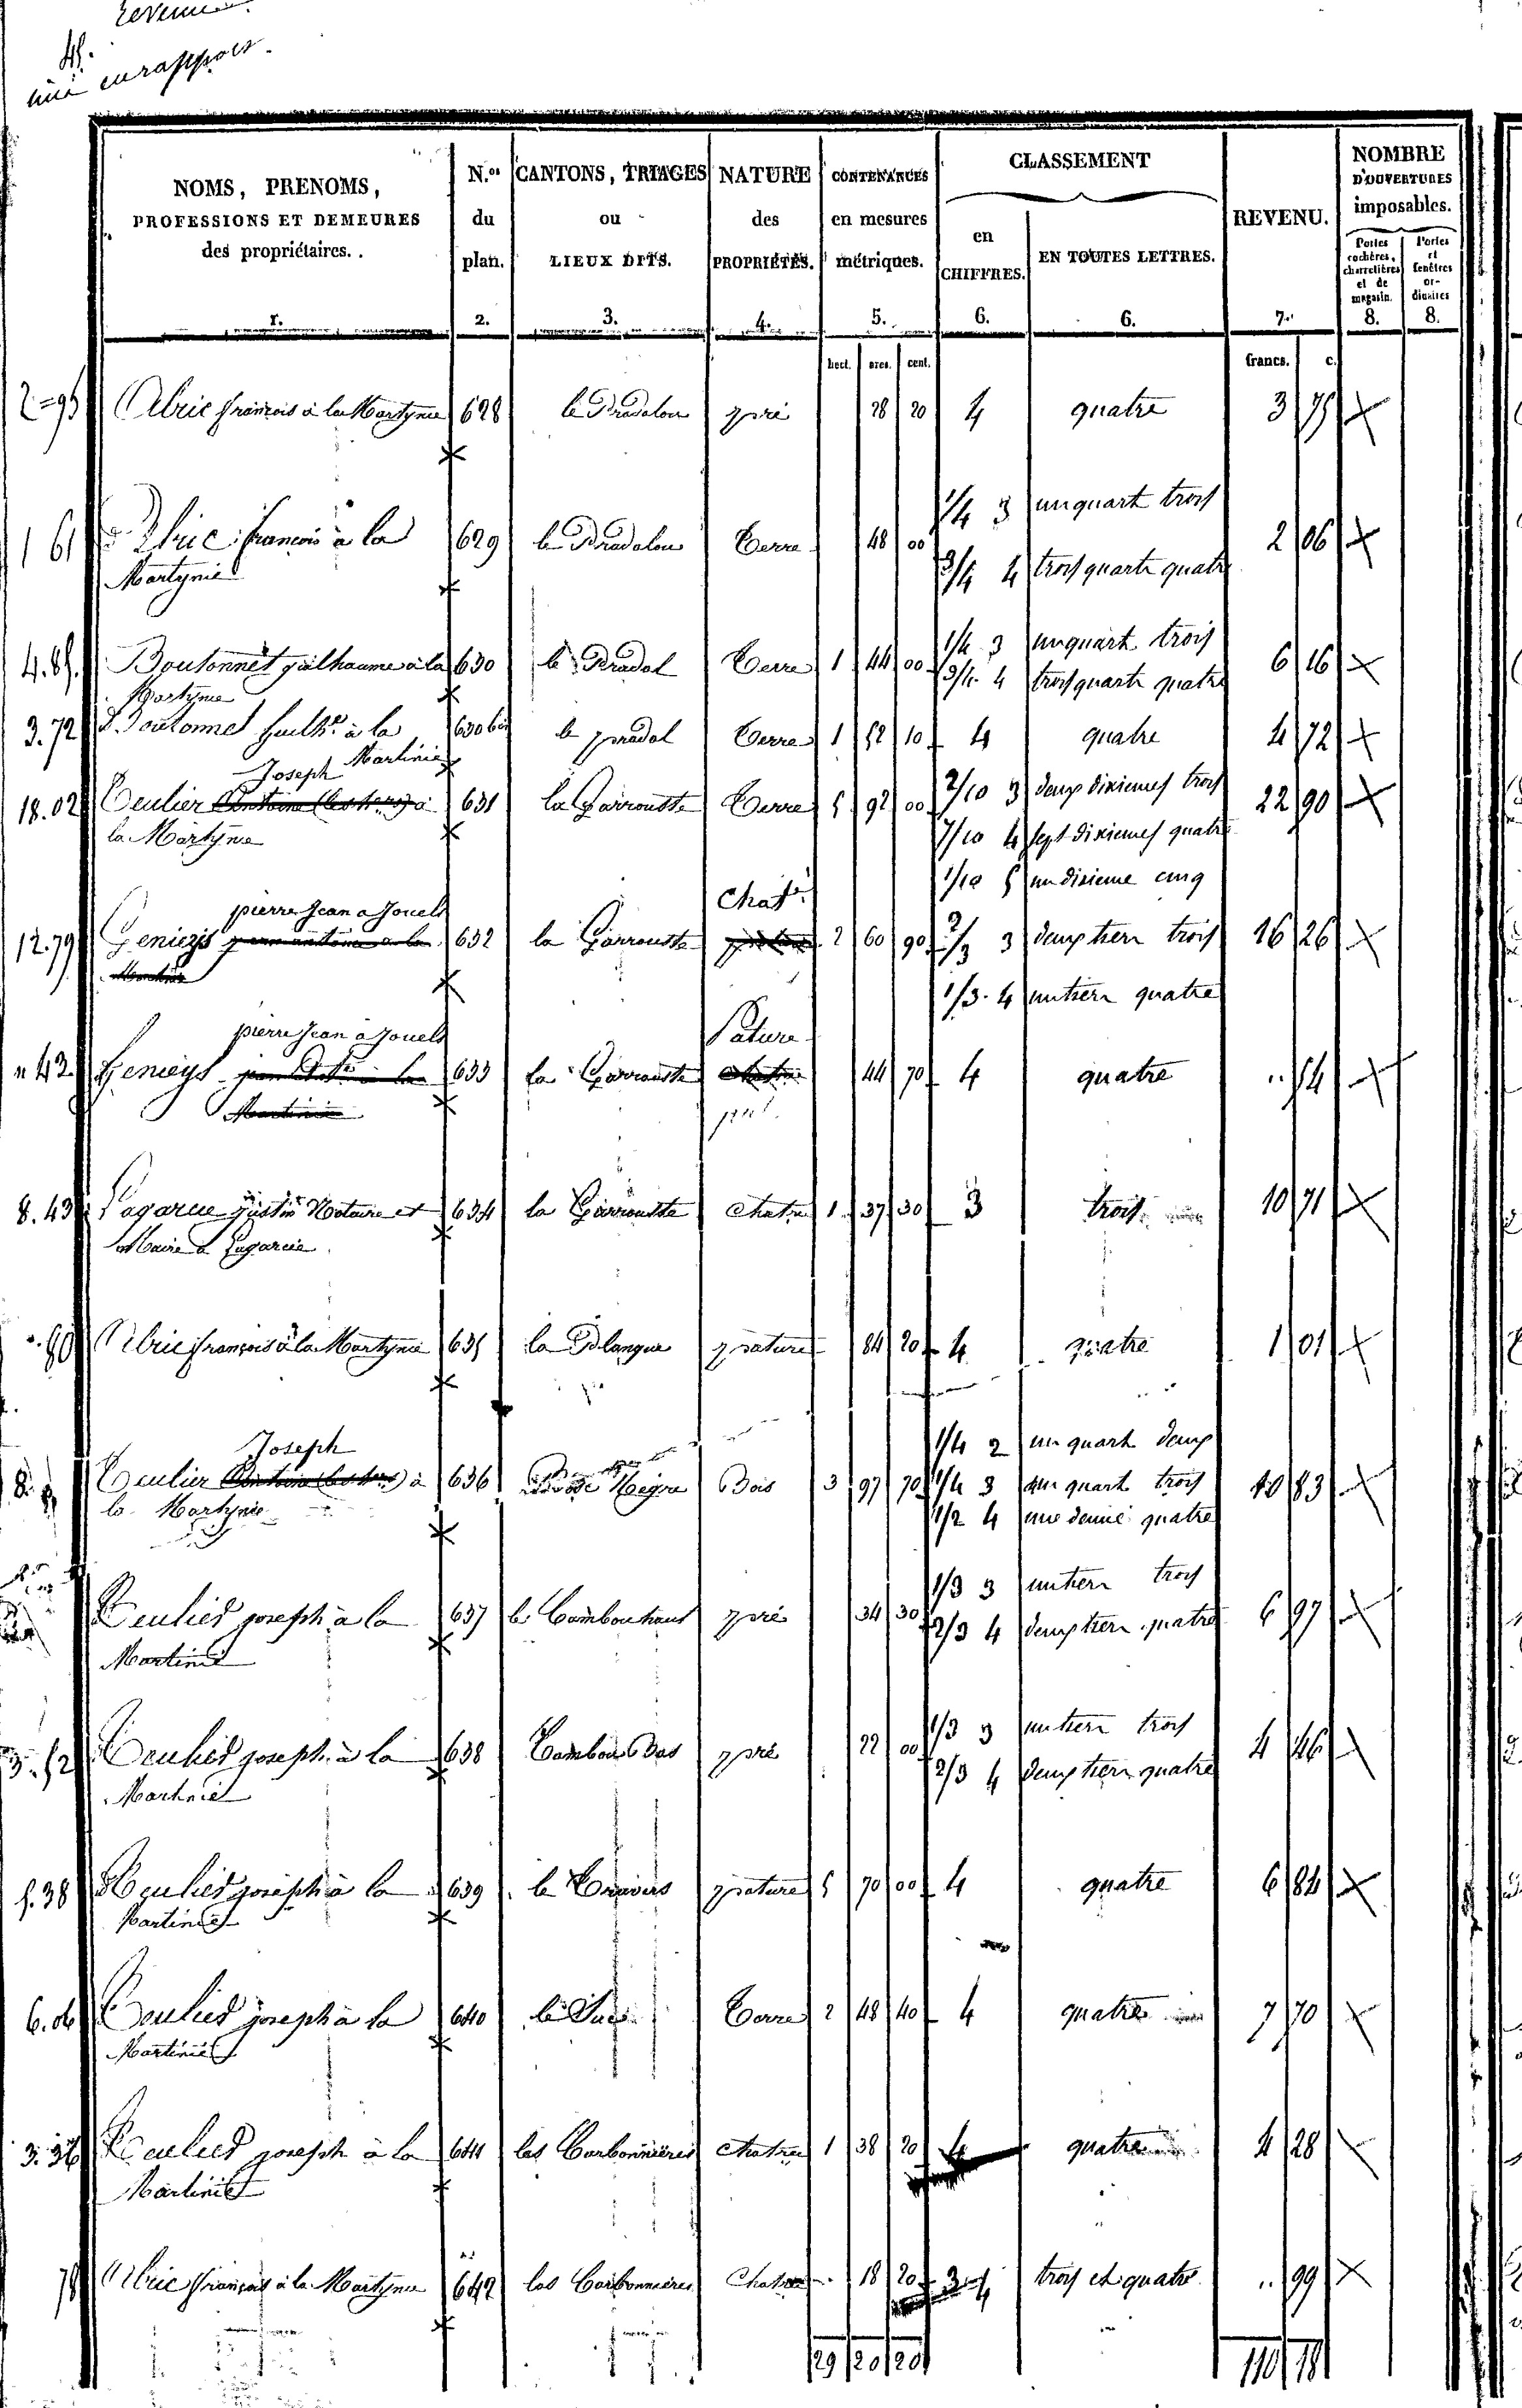 en rapport.
NOMS, PRENOMS,
PROFESSIONS ET DEMEURES
des propriétaires.
1.
N.os
du
plan.
2.
CANTONS, TRIAGES
ou
LIEUX DITS.
3.
NATURE
des
PROPRIETES.
4.
CONTENANCES
en mesures
métriques.
5.
CLASSEMENT
en
CHIFFRES.
6.
EN TOUTES LETTRES.
6.
REVENU.
7.
NOMBRE
D'OUVERTURES
imposables.
Portes
cochères,
charretières
et de
magasin.
8.
Portes
et
fenêtres
or-
dinaires
8.
hect. ares. cent. francs. c.
2=95 Albric françois à la Martynie 628 le Pradalou pré 28 20 4 quatre 3 75
1/4 3 un quart trois
1 61 Albric françois à la 629 le Pradalou Terre 48 00 2 06
Martynie 3/4 4 trois quarts quatre
1/4 3 un quart trois
4.85 Boutonnet guilhaume à la 630 le Pradal Terre 1 44 00 6 16
Martynie 3/4 4 trois quarts quatre
3.72 Boutonnet Guilhe à la 630 bis le pradal Terre 1 52 10 4 quatre 4 72
Martinie
Joseph 2/10 3 deux dixiemes trois
18.02 Teulier à 631 la Garrouste Terre 5 92 00 22 90
la Martynie 7/10 4 sept dixiemes quatre
1/10 5 un dixieme cinq
pierre Jean a Jouels Chat.
12.79 Genieys 632 la Garrouste 2 60 90 2/3 3 deux tiers trois 16 26
1/3 4 un tiers quatre
pierre Jean à Jouels Pature
" 43 Genieys 633 la Garrouste 44 70 4 quatre .. 54
Martinie
8.43 Lagarcie justin Notaire et 634 la Garrouste chatre 1 37 30 3 trois 10 71
Maire à Lagarcie
.80 Albric françois à la Martynie 635 la Planque pature 84 20 4 quatre 1 01
Joseph 1/4 2 un quart deux
Teulier à 636 Negre Bois 3 97 70 1/4 3 un quart trois 10 83
la Martynie 1/2 4 une demie quatre
1/3 3 un tiers trois
Teulier joseph à la 637 le Cambou haut pré 34 30 6 97
Martinie 2/3 4 deux tiers quatre
1/3 3 un tiers trois
3.52 Teulier joseph à la 638 Cambou Bas pré 22 00 4 46
Martinie 2/3 4 deux tiers quatre
5.38 Teulier joseph à la 639 le Travers pature 5 70 00 4 quatre 6 84
Martinie
6.06 Teulier joseph à la 640 le Suc Terre 2 48 40 4 quatre 7 70
Martinie
3.36 Teulier joseph à la 641 las Carbonnières chatre 1 38 20 4 quatre 4 28
Martinie
78 Albric françois à la Martynie 642 las Carbonnières Chatre 18 20 3 4 trois et quatre .. 99
29 20 20 110 18